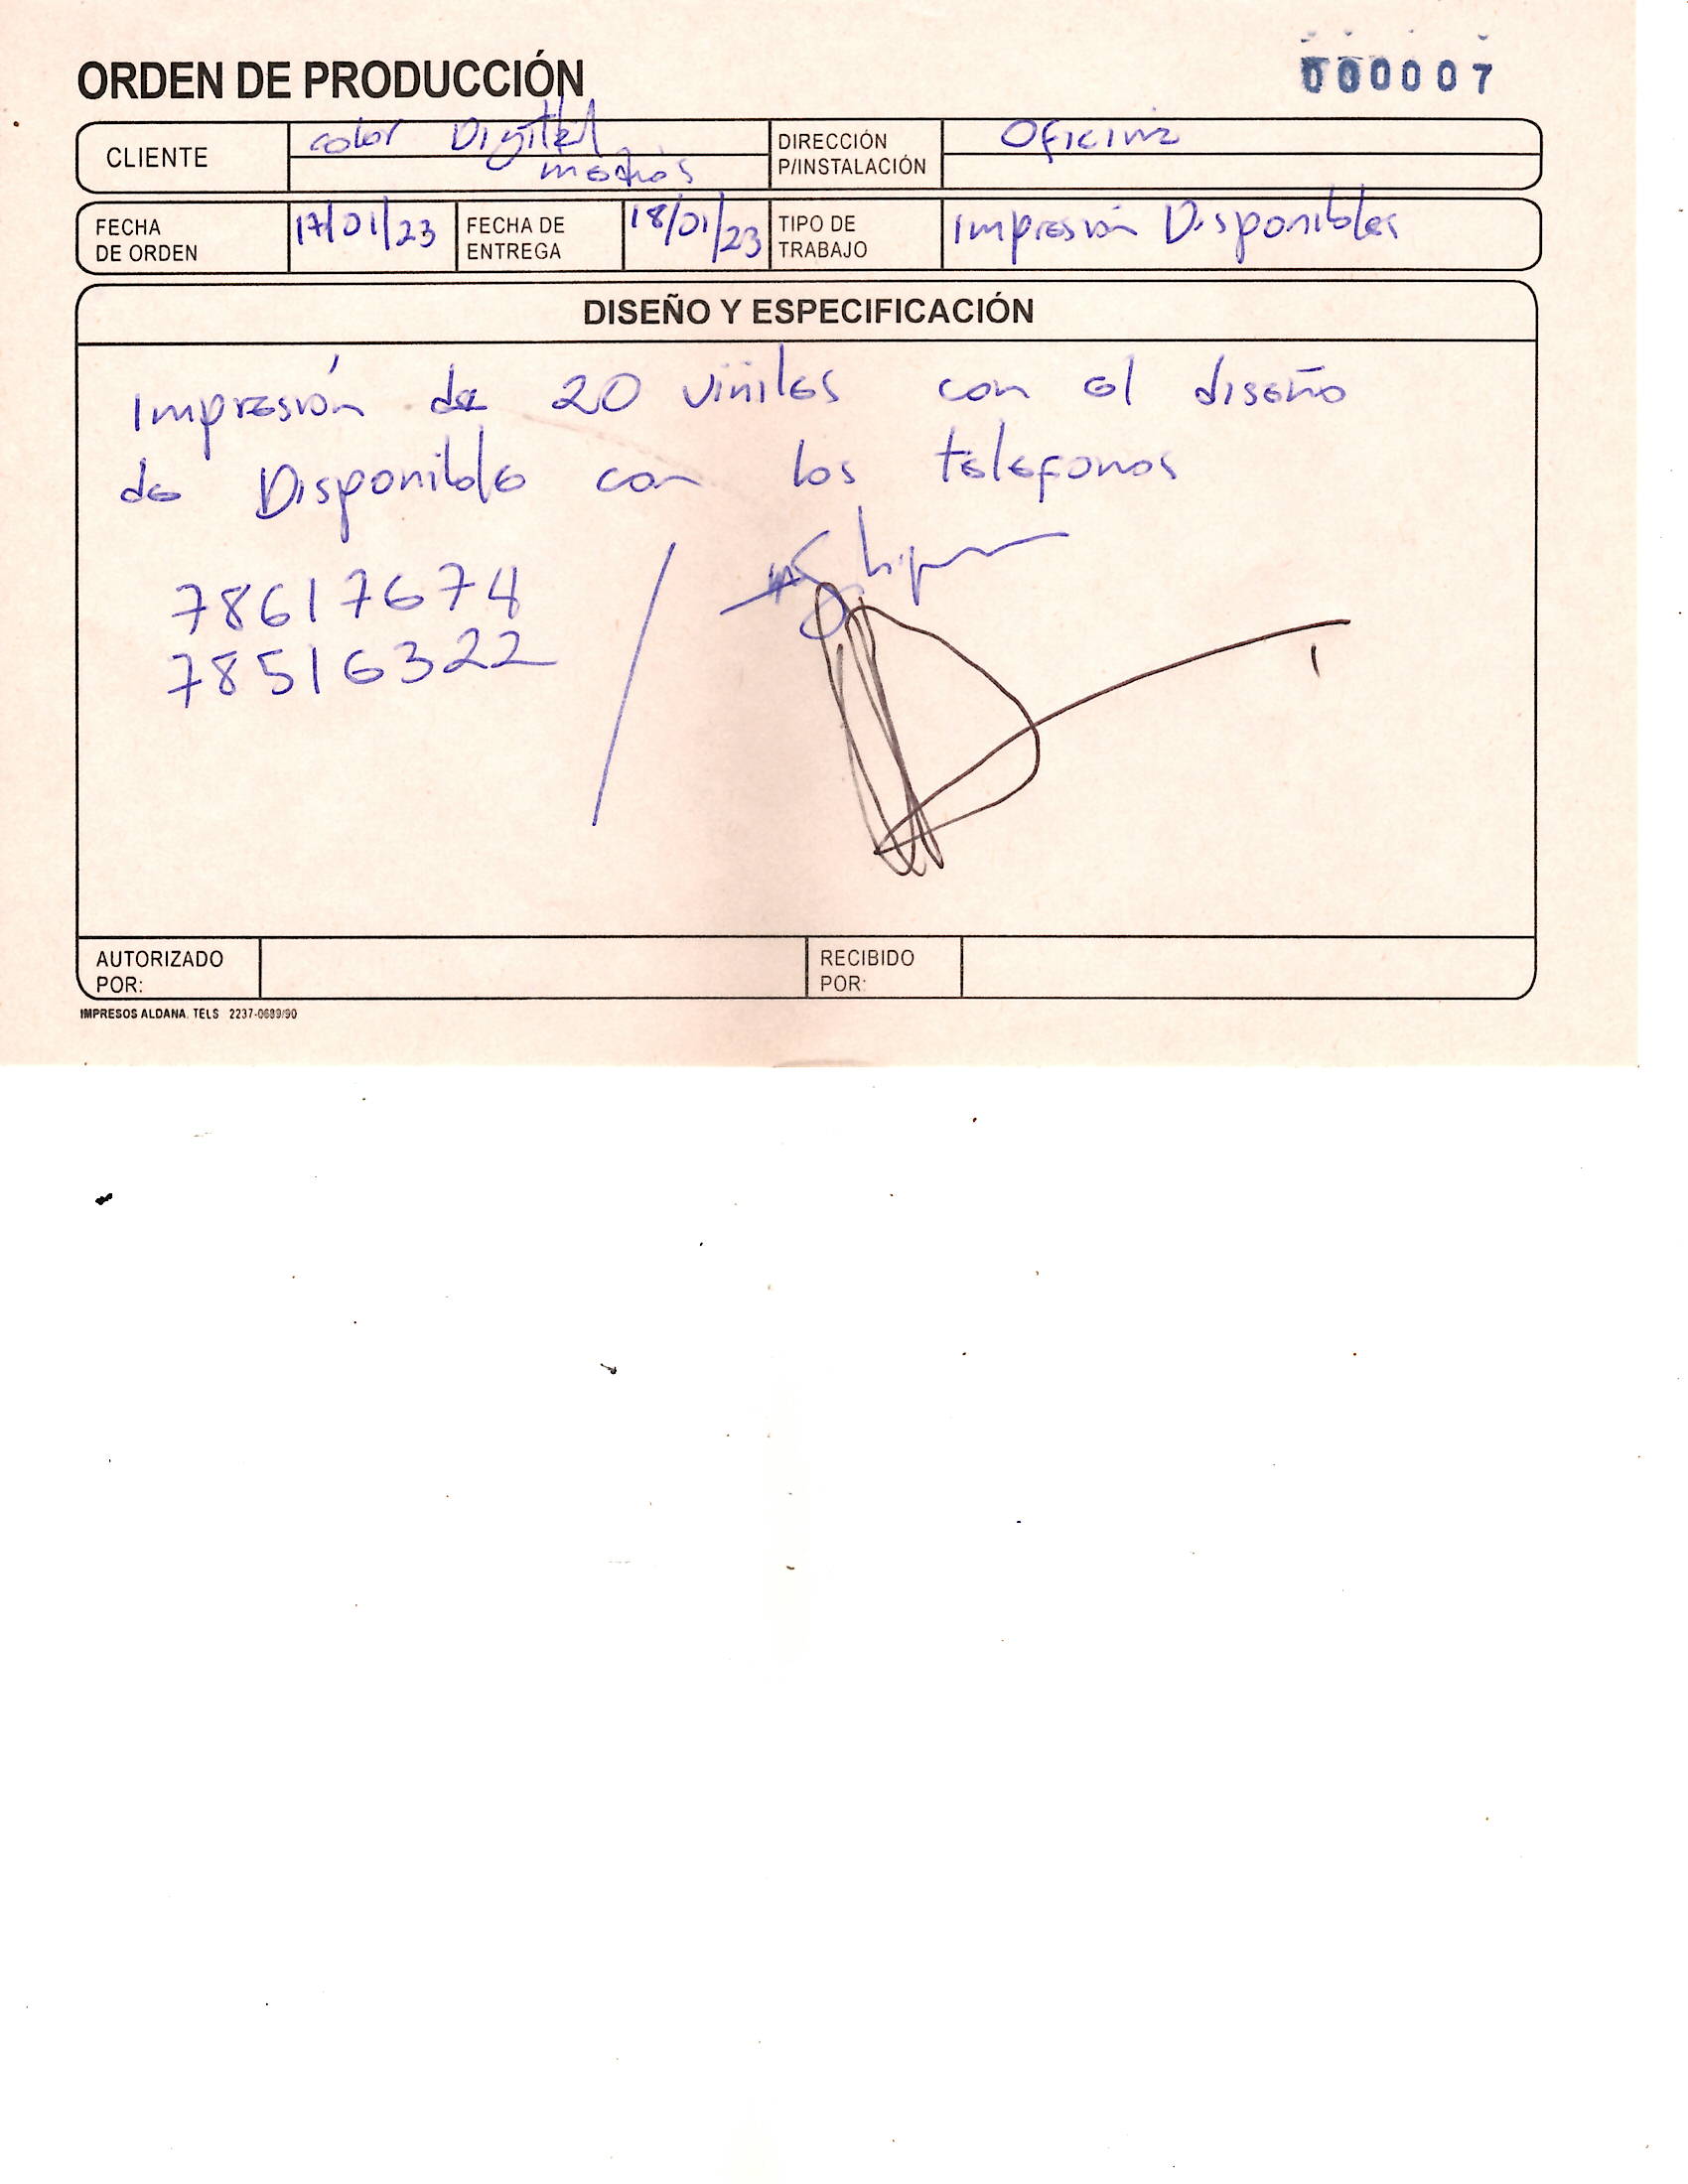 ORDEN DE PRODUCCIÓN
000007
CLIENTE
color Digital
medios
DIRECCIÓN
P/INSTALACIÓN
Oficina
FECHA
DE ORDEN
17/01/23
FECHA DE
ENTREGA
18/01/23
TIPO DE
TRABAJO
Impresión Disponibles
DISEÑO Y ESPECIFICACIÓN
Impresión de 20 viniles con el diseño
de Disponible con los telefonos
78617674
78516322
AUTORIZADO
POR:
RECIBIDO
POR:
IMPRESOS ALDANA. TELS 2237-0689/90